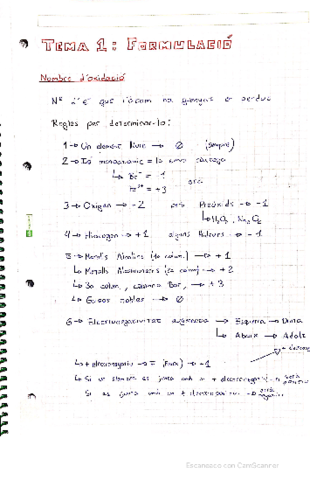 TEMA 1: FORMULACIÓ
Nombre d'oxidació
Nº d'e⁻ que l'àtom ha guanyat o perdut
Regles per determinar-lo:
1 → Un element lliure → 0 (sempre)
2 → Ió monoatòmic = la seva càrrega
↳ Br⁻ = -1
Fe³⁺ = +3
3 → Oxigen → -2 però Peròxids → -1
↳ H₂O₂, Na₂O₂
4 → Hidrogen → +1 alguns Hidrurs → -1
5 → Metalls Alcalins (1a colum.) → +1
↳ Metalls Alcalinoterris (2a colum) → +2
↳ 3a colum, Bor, → +3
↳ Gasos nobles → 0
6 → Electronegativitat augmenta → Esquerra → Dreta
↳ Abaix → Adalt
↳ + electronegatiu → F (Fluor) → -1
↳ Si un element es junta amb un + electronegatiu → serà positiu
Si es junta amb un - electronegatiu → serà negatiu
Escaneado con CamScanner